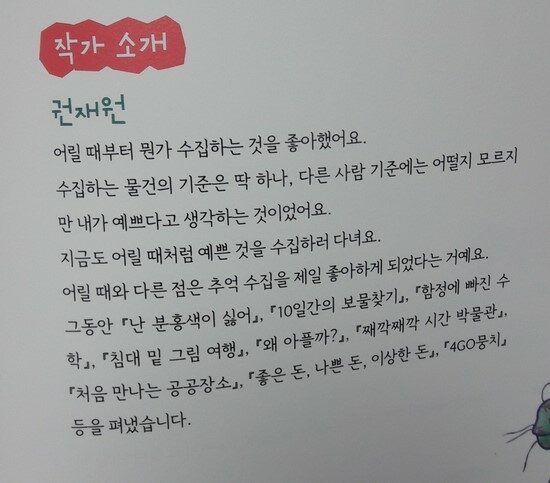 작가 소개
권재원
어릴 때부터 뭔가 수집하는 것을 좋아했어요.
수집하는 물건의 기준은 딱 하나, 다른 사람 기준에는 어떨지 모르지
만 내가 예쁘다고 생각하는 것이었어요.
지금도 어릴 때처럼 예쁜 것을 수집하러 다녀요.
어릴 때와 다른 점은 추억 수집을 제일 좋아하게 되었다는 거예요.
그동안 『난 분홍색이 싫어』, 『10일간의 보물찾기』, 『함정에 빠진 수
학』, 『침대 밑 그림 여행』, 『왜 아플까?』, 『째깍째깍 시간 박물관』,
『처음 만나는 공공장소』, 『좋은 돈, 나쁜 돈, 이상한 돈』, 『4GO뭉치』
등을 펴냈습니다.